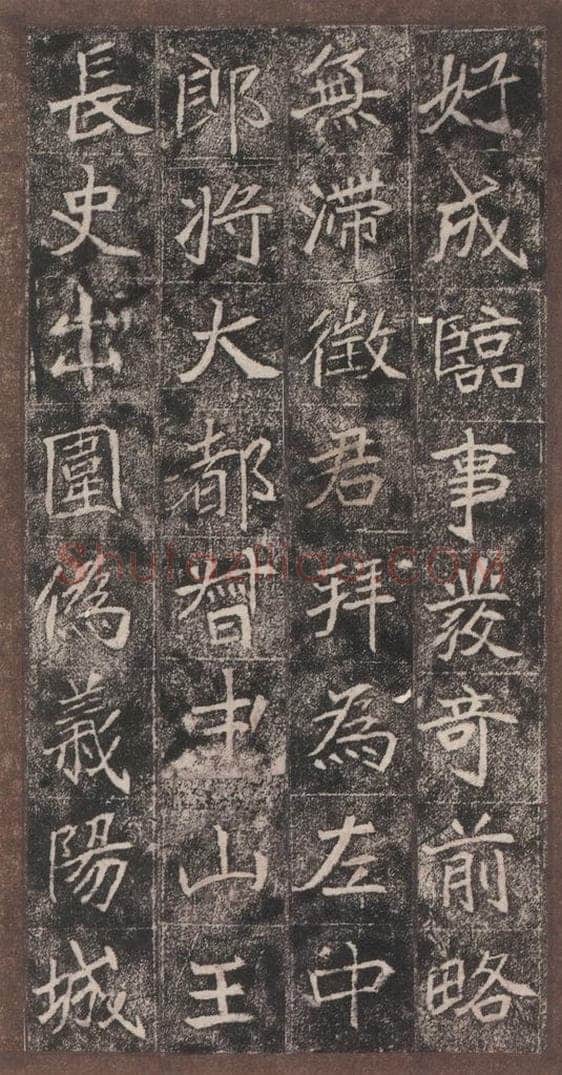 好成臨事發奇前略
無滯徵君拜為左中
郎將大都督中山王
長史出圍偽義陽城
Shufaziliao.COM